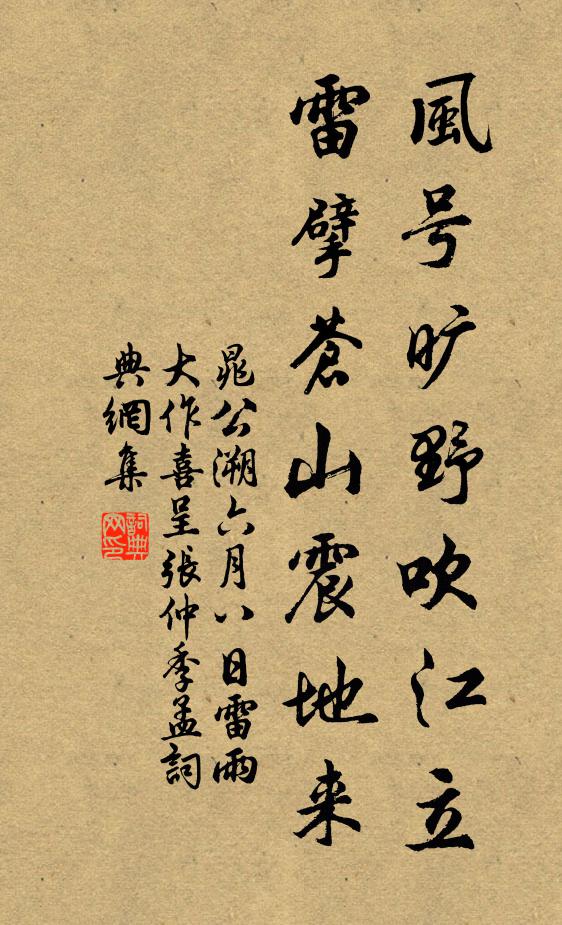 風号旷野吹江立
雷擘蒼山震地来
晁公溯六月八日雷雨
大作喜呈張仲季孟詞
典網集
詞典
网印